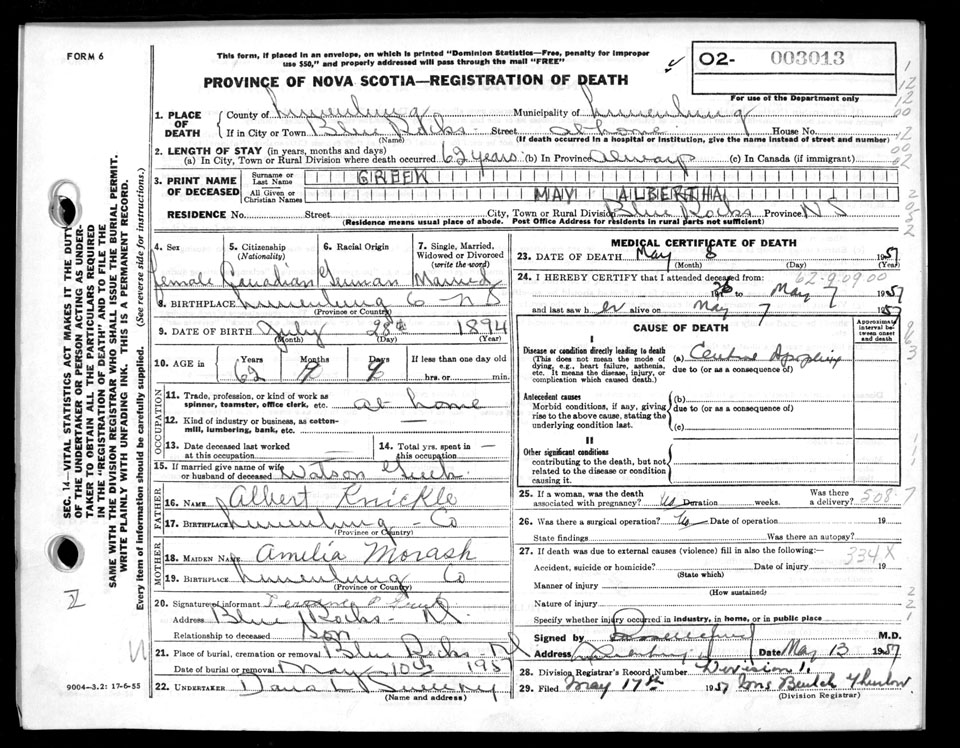 FORM 6
This form, if placed in an envelope, on which is printed "Dominion Statistics—Free, penalty for improper
use $50," and properly addressed will pass through the mail "FREE"
PROVINCE OF NOVA SCOTIA—REGISTRATION OF DEATH
02- 003013
For use of the Department only
SEC. 14—VITAL STATISTICS ACT MAKES IT THE DUTY
OF THE UNDERTAKER OR PERSON ACTING AS UNDER-
TAKER TO OBTAIN ALL THE PARTICULARS REQUIRED
IN THE "REGISTRATION OF DEATH" AND TO FILE THE
SAME WITH THE DIVISION REGISTRAR WHO SHALL ISSUE THE BURIAL PERMIT.
WRITE PLAINLY WITH UNFADING INK. THIS IS A PERMANENT RECORD.
Every item of information should be carefully supplied. (See reverse side for instructions.)
1. PLACE OF DEATH County of Lunenburg Municipality of Lunenburg
If in City or Town Blue Rocks Street at home House No.
(Name) (If death occurred in a hospital or institution, give the name instead of street and number)
2. LENGTH OF STAY (in years, months and days)
(a) In City, Town or Rural Division where death occurred 62 years (b) In Province always (c) In Canada (if immigrant)
3. PRINT NAME OF DECEASED Surname or Last Name GREEK
All Given or Christian Names MAY ALBERTHA
RESIDENCE No. Street City, Town or Rural Division Blue Rocks Province N S
(Residence means usual place of abode. Post Office Address for residents in rural parts not sufficient)
4. Sex 5. Citizenship (Nationality) 6. Racial Origin 7. Single, Married, Widowed or Divorced (write the word)
female Canadian German Married
8. BIRTHPLACE Lunenburg Co N S
(Province or Country)
9. DATE OF BIRTH July 28th 1894
(Month) (Day) (Year)
10. AGE in Years Months Days If less than one day old
62 9 9 hrs. or min.
OCCUPATION
11. Trade, profession, or kind of work as spinner, teamster, office clerk, etc. at home
12. Kind of industry or business, as cotton-mill, lumbering, bank, etc. —
13. Date deceased last worked at this occupation — 14. Total yrs. spent in this occupation —
15. If married give name of wife or husband of deceased Watson Greek
FATHER
16. NAME Albert Knickle
17. BIRTHPLACE Lunenburg - Co
(Province or Country)
MOTHER
18. MAIDEN NAME Amelia Morash
19. BIRTHPLACE Lunenburg Co
(Province or Country)
20. Signature of informant
Address Blue Rocks - NS
Relationship to deceased Son
21. Place of burial, cremation or removal Blue Rocks - NS
Date of burial or removal May 10th 1957
22. UNDERTAKER Dana L Sweeny
(Name and address)
9004—3.2: 17-6-55
MEDICAL CERTIFICATE OF DEATH
23. DATE OF DEATH May 8 1957
(Month) (Day) (Year)
24. I HEREBY CERTIFY that I attended deceased from: 62-9-09.00
19 to May 7 1957
and last saw h er alive on May 7 1957
CAUSE OF DEATH
Approximate interval between onset and death
I
Disease or condition directly leading to death (a) Cerebral Apoplexy
(This does not mean the mode of dying, e.g., heart failure, asthenia, etc. It means the disease, injury, or complication which caused death.) due to (or as a consequence of)
Antecedent causes (b)
Morbid conditions, if any, giving rise to the above cause, stating the underlying condition last. due to (or as a consequence of)
(c)
II
Other significant conditions
contributing to the death, but not related to the disease or condition causing it.
25. If a woman, was the death associated with pregnancy? No Duration weeks. Was there a delivery? 508.7
26. Was there a surgical operation? No Date of operation 19
State findings Was there an autopsy?
27. If death was due to external causes (violence) fill in also the following:— 334X
Accident, suicide or homicide? Date of injury 19
(State which)
Manner of injury
(How sustained)
Nature of injury
Specify whether injury occurred in industry, in home, or in public place
Signed by M.D.
Address Lunenburg Date May 13 1957
28. Division Registrar's Record Number Division 1.
29. Filed May 17th 1957 Mrs Beulah
(Division Registrar)